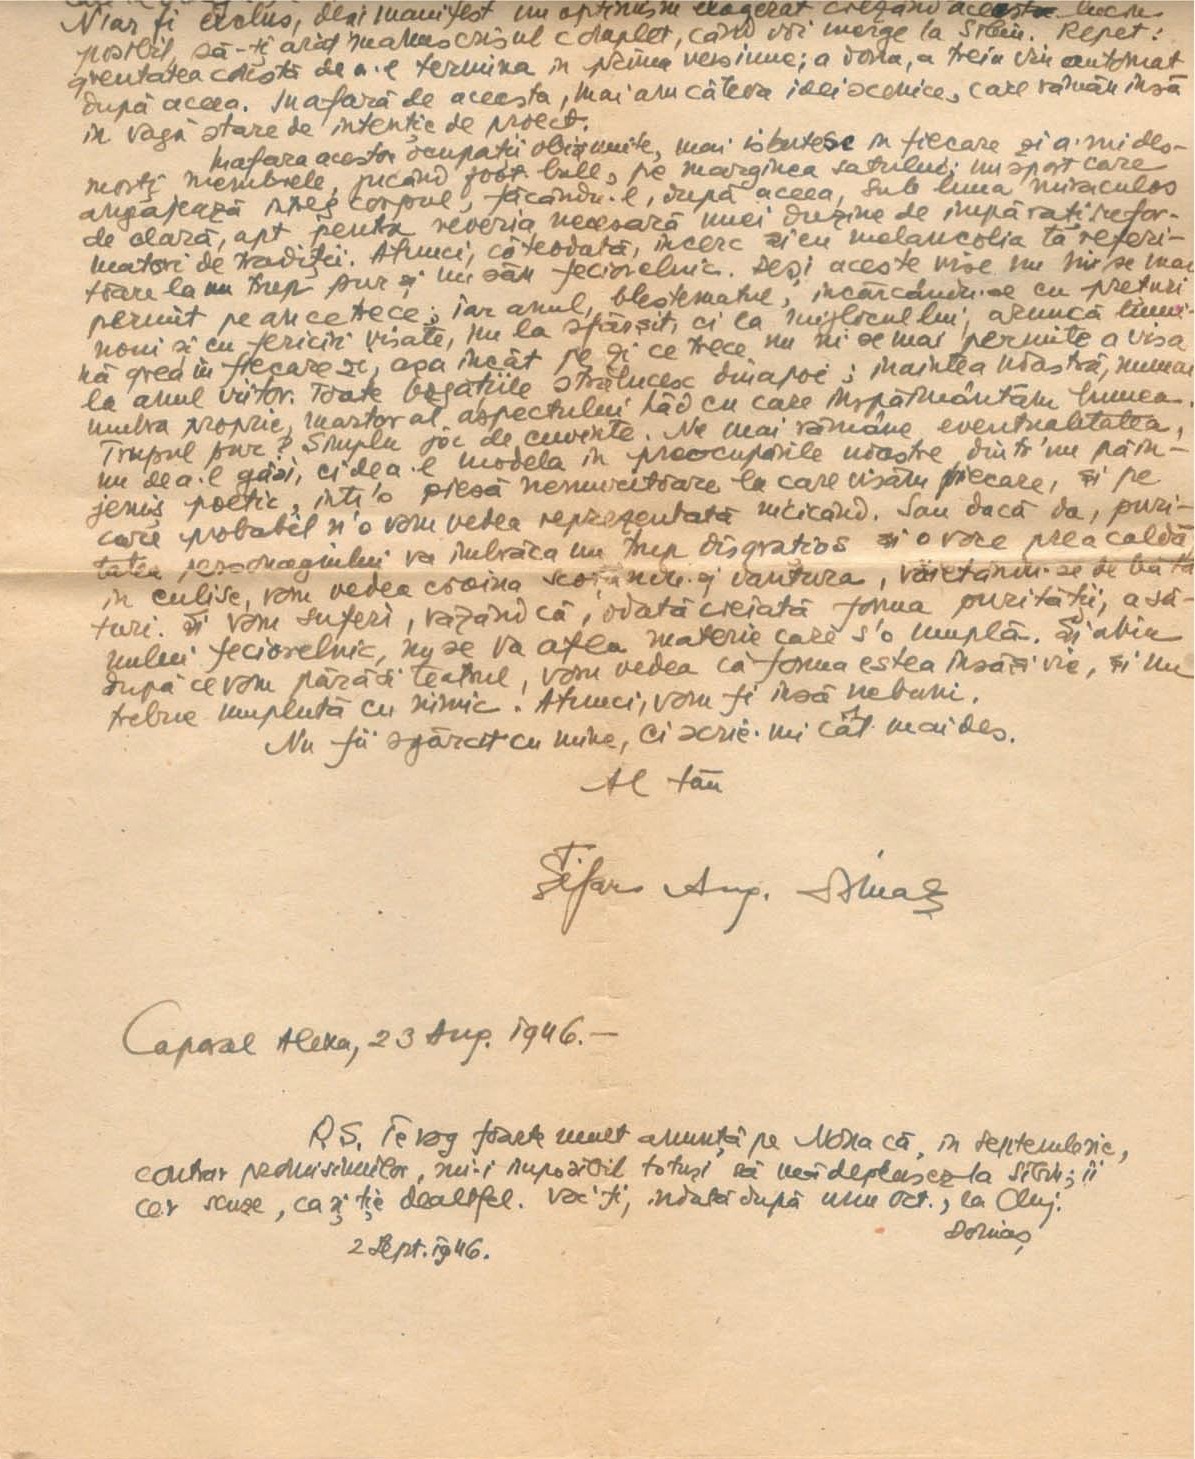 N'ar fi exclus, deși manifest un optimism exagerat crezând aceasta lucru
posibil, să-ți arăt manuscrisul complet, când voi merge la Sibiu. Repet:
greutatea constă de a-l termina în prima versiune; a doua, a treia vin automat
după aceea. Inafară de aceasta, mai am câteva idei scenice, care rămân însă
în vaga stare de intenție de proect.
Inafara acestor ocupații obișnuite, mai isbutesc în fiecare zi a-mi des-
morți membrele, jucând foot-ball, pe marginea satului; un sport care
angajează întreg corpul, făcându-l, după aceea, sub luna miraculos
de clară, apt pentru reveria necesară unei duzine de împărați refor-
matori de tradiții. Atunci, câteodată, încerc și eu melancolia ta referi-
toare la un trup pur și un sân feciorelnic. Deși aceste vise nu ni se mai
permit pe an ce trece; iar anul, blestematul, încărcându-se cu prețuri
noui și cu fericiri visate, nu la sfârșit, ci la mijlocul lui, aruncă lumi-
nă grea în fiecare zi, așa încât pe zi ce trece nu ni se mai permite a visa
la anul viitor. Toate bogățiile strălucesc dinapoi; înaintea noastră, numai
umbra proprie, martor al aspectului hâd cu care înspăimântăm lumea.
Trupul pur? Simplu joc de cuvinte. Ne mai rămâne eventualitatea,
nu de a-l găsi, ci de a-l modela în preocupările noastre, dintr'un păin-
jeniș poetic, într'o piesă nemuritoare la care visăm fiecare, și pe
care probabil n'o vom vedea reprezentată nicicând. Sau dacă da, puri-
tatea personagiului va îmbrăca un trup disgrațios și o voce prea caldă
în culise, vom vedea eroina și vântura, văietându-se de bătă-
turi. Și vom suferi, văzând că, odată creiată forma purității, a sâ-
nului feciorelnic, nu se va afla materie care s'o umplă. Și abia
după ce vom părăsi teatrul, vom vedea că forma estea însăși vie, și nu
trebue umplută cu nimic. Atunci, vom fi însă nebuni.
Nu fi sgârcit cu mine, ci scrie-mi cât mai des.
Al tău
Ștefan Aug. Doinaș
Caporal Alexa, 23 Aug. 1946.—
P.S. Te rog foarte mult anunță pe Nora că, în Septembrie,
contrar promisiunilor, mi-i imposibil totuși să mă deplasez la Sibiu; îi
cer scuze, ca și ție dealtfel. Voi fi, îndată după unu Oct., la Cluj.
Doinaș
2 Sept. 1946.